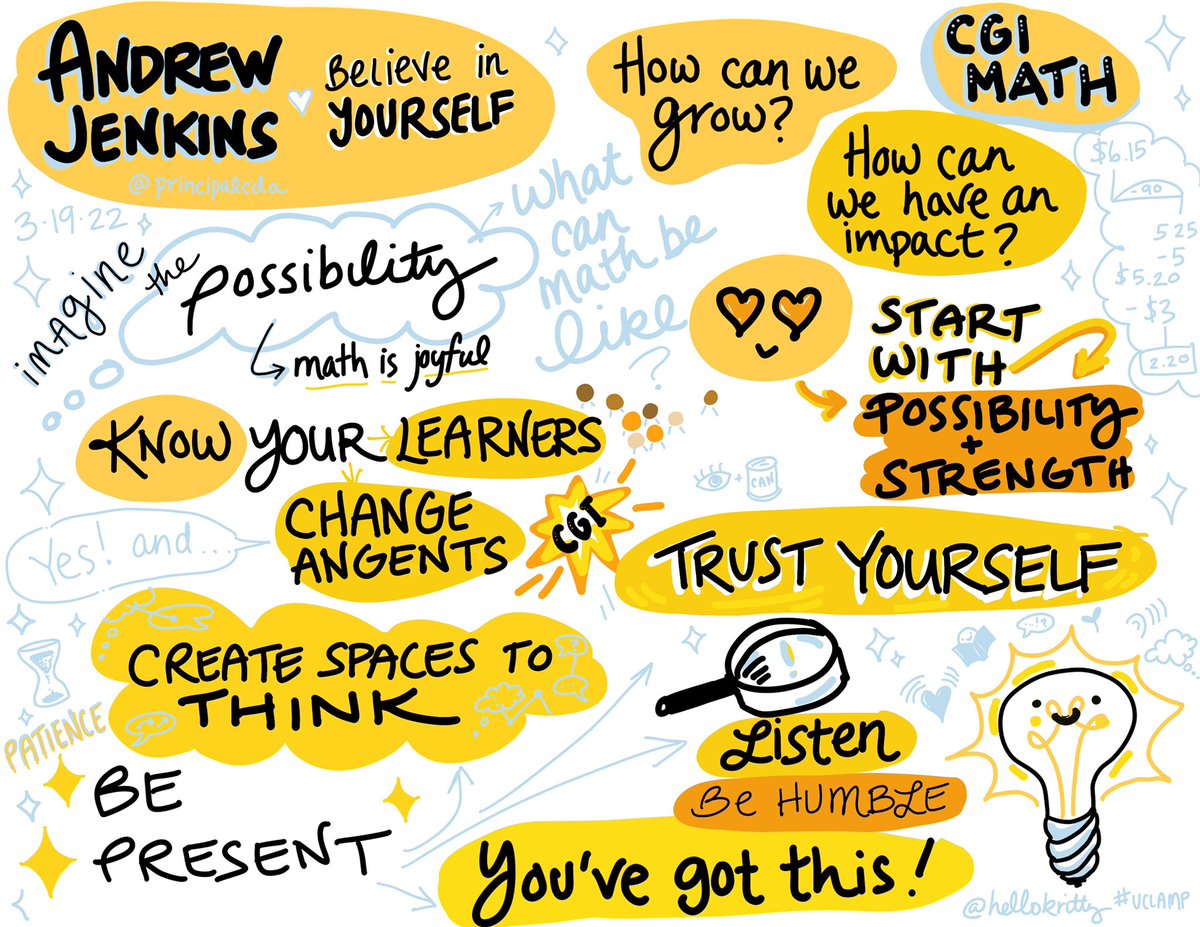 ANDREW
JENKINS
Believe in
YOURSELF
@principalcda
3·19·22
How can we
grow?
CGI
MATH
How can
we have an
impact?
$6.15
-90
5 25
-5
$5.20
-$3
2.20
imagine
the
possibility
math is joyful
What
can
math be
like
?
START
WITH
POSSIBILITY
+
STRENGTH
KNOW YOUR LEARNERS
CHANGE
ANGENTS
CGI
+ CAN
Yes! and...
TRUST YOURSELF
CREATE SPACES TO
THINK
PATIENCE
BE
PRESENT
Listen
Be HUMBLE
You've got this!
?!
@hellokritty #UCLAMP